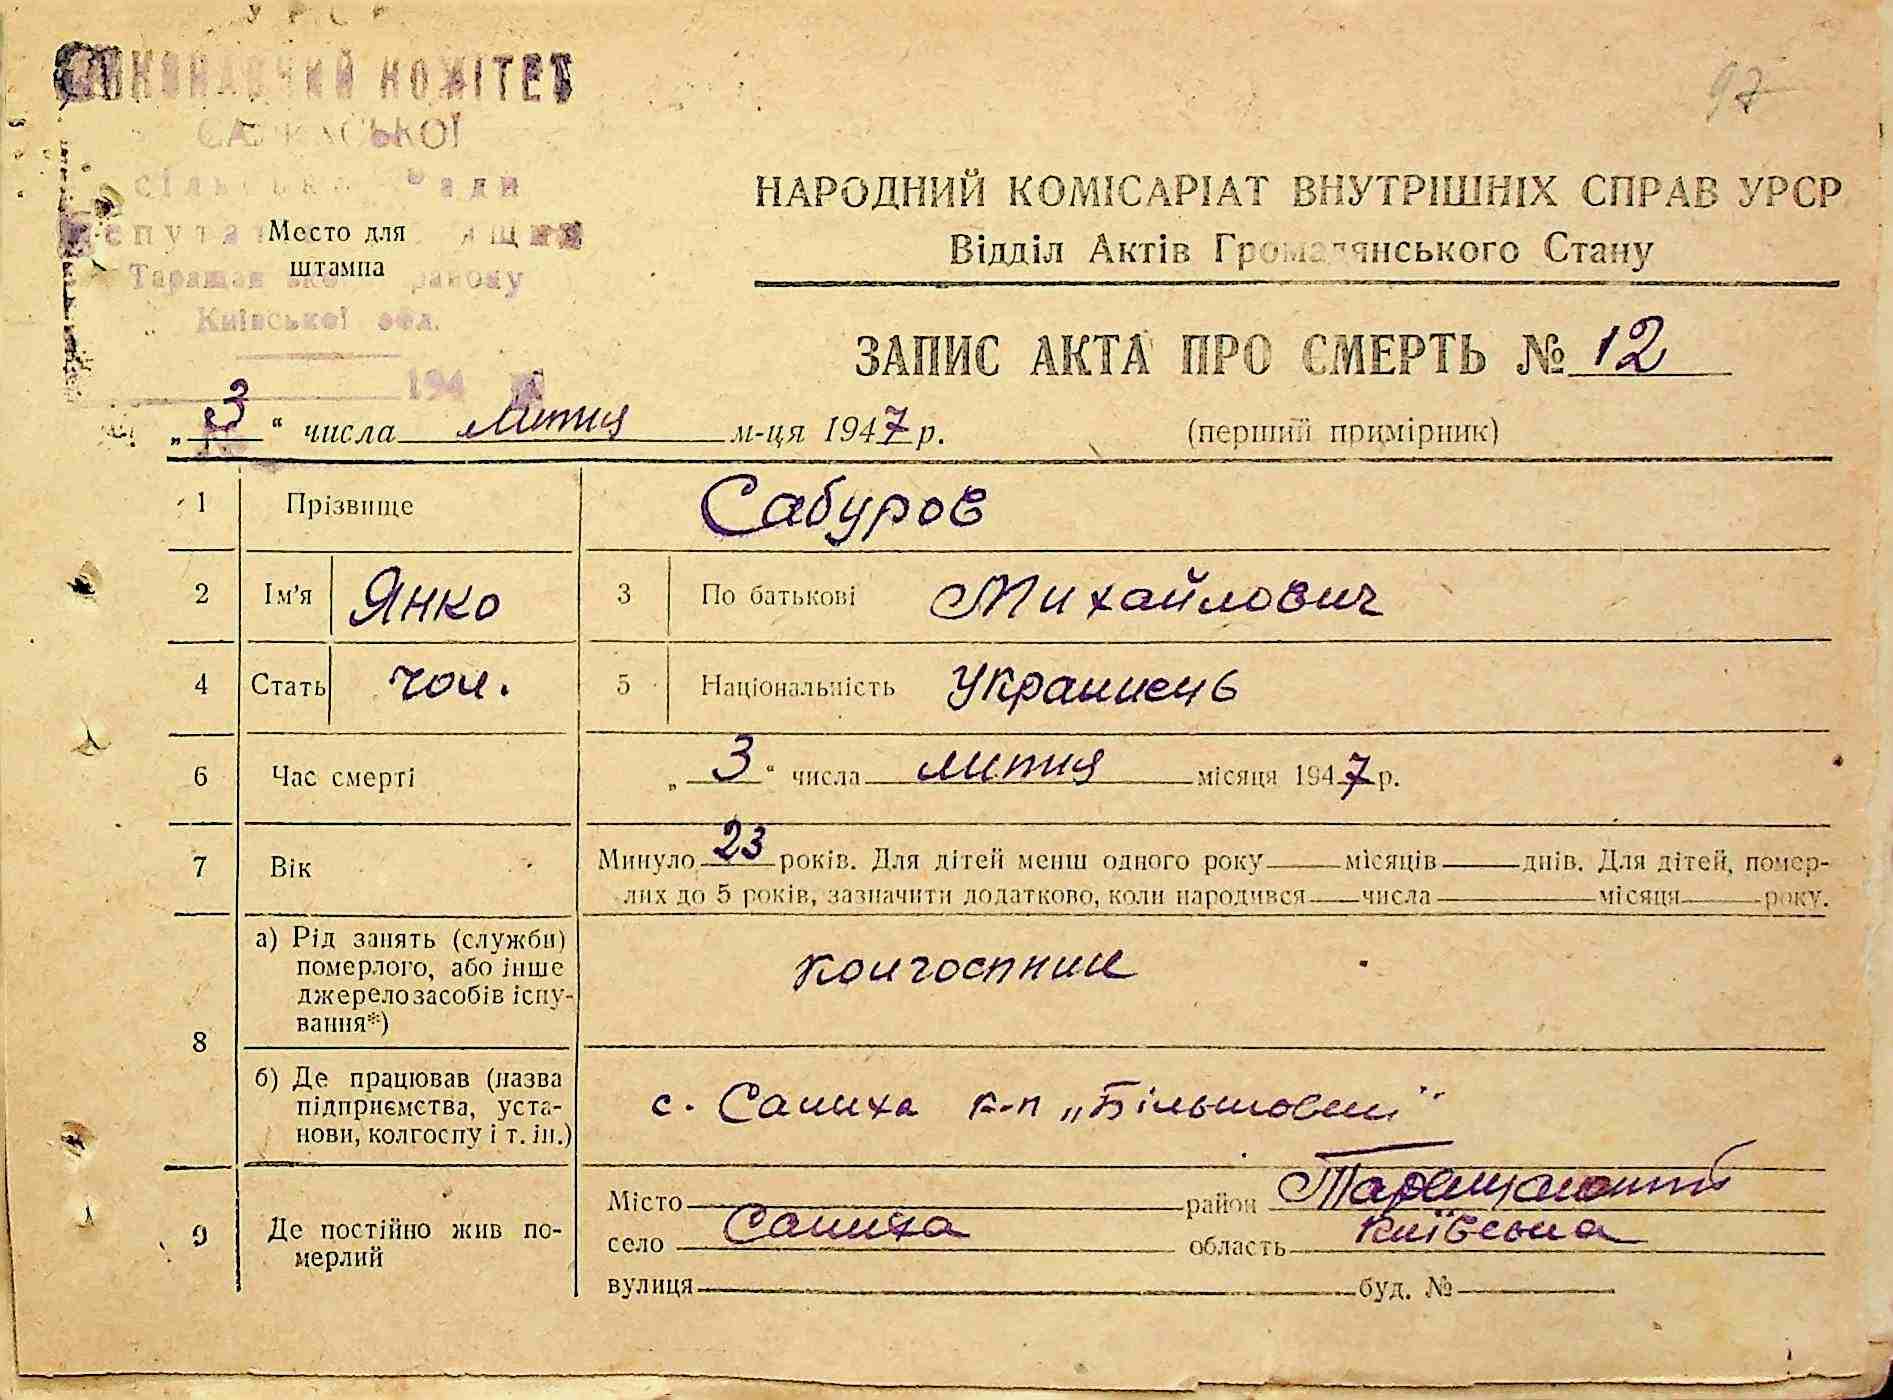 УРСР
ВИКОНАВЧИЙ КОМІТЕТ
97
Київської обл.
194
Место для
штампа
НАРОДНИЙ КОМІСАРІАТ ВНУТРІШНІХ СПРАВ УРСР
Відділ Актів Громадянського Стану
ЗАПИС АКТА ПРО СМЕРТЬ № 12
„3“ числа липня м-ця 1947 р. (перший примірник)
1 Прізвище Сабуров
2 Ім'я Янко 3 По батькові Михайлович
4 Стать чол. 5 Національність Українець
6 Час смерті „3“ числа липня місяця 1947 р.
7 Вік Минуло 23 років. Для дітей менш одного року місяців днів. Для дітей, помер-
лих до 5 років, зазначити додатково, коли народився числа місяця року.
8 а) Рід занять (служби)
померлого, або інше
джерело засобів існу-
вання*)
колгоспник
б) Де працював (назва
підприємства, уста-
нови, колгоспу і т. ін.)
с. Салиха к-п „Більшовик"
9 Де постійно жив по-
мерлий
Місто район Таращанський
село Салиха область Київська
вулиця буд. №